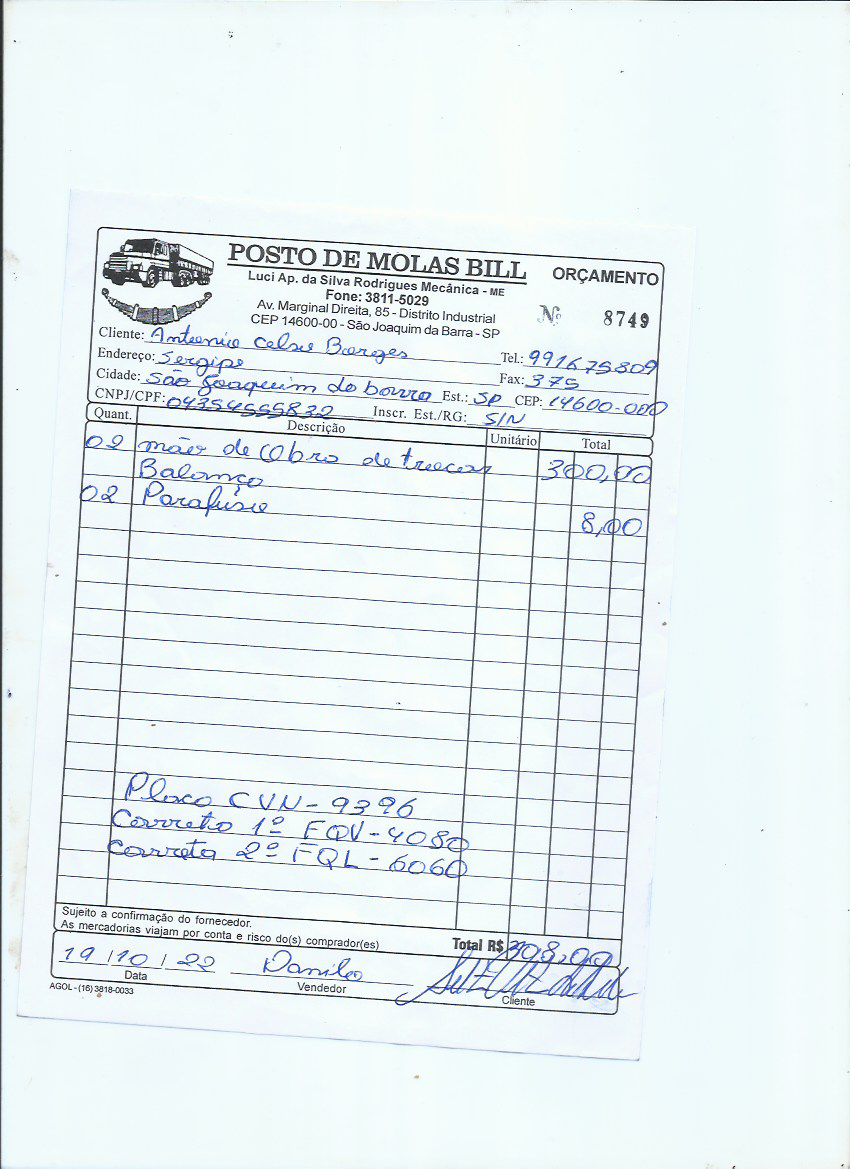 POSTO DE MOLAS BILL
ORÇAMENTO
Luci Ap. da Silva Rodrigues Mecânica - ME
Fone: 3811-5029
Av. Marginal Direita, 85 - Distrito Industrial
CEP 14600-00 - São Joaquim da Barra - SP
Nº 8749
Cliente: Antonio Celso Borges Tel.: 991675809
Endereço: Sergipe Fax: 375
Cidade: São Joaquim da barra Est.: SP CEP: 14600-000
CNPJ/CPF: 04354555832 Inscr. Est./RG: S/N
Quant. Descrição Unitário Total
02 mão de Obra de trocar 300,00
Balanço
02 Parafuso 8,00
Placa CVN-9396
Carreta 1º FQV-4080
Carreta 2º FQL-6060
Sujeito a confirmação do fornecedor.
As mercadorias viajam por conta e risco do(s) comprador(es)
Total R$ 308,00
19/10/22 Danilo
Data Vendedor Cliente
AGOL - (16) 3818-0033